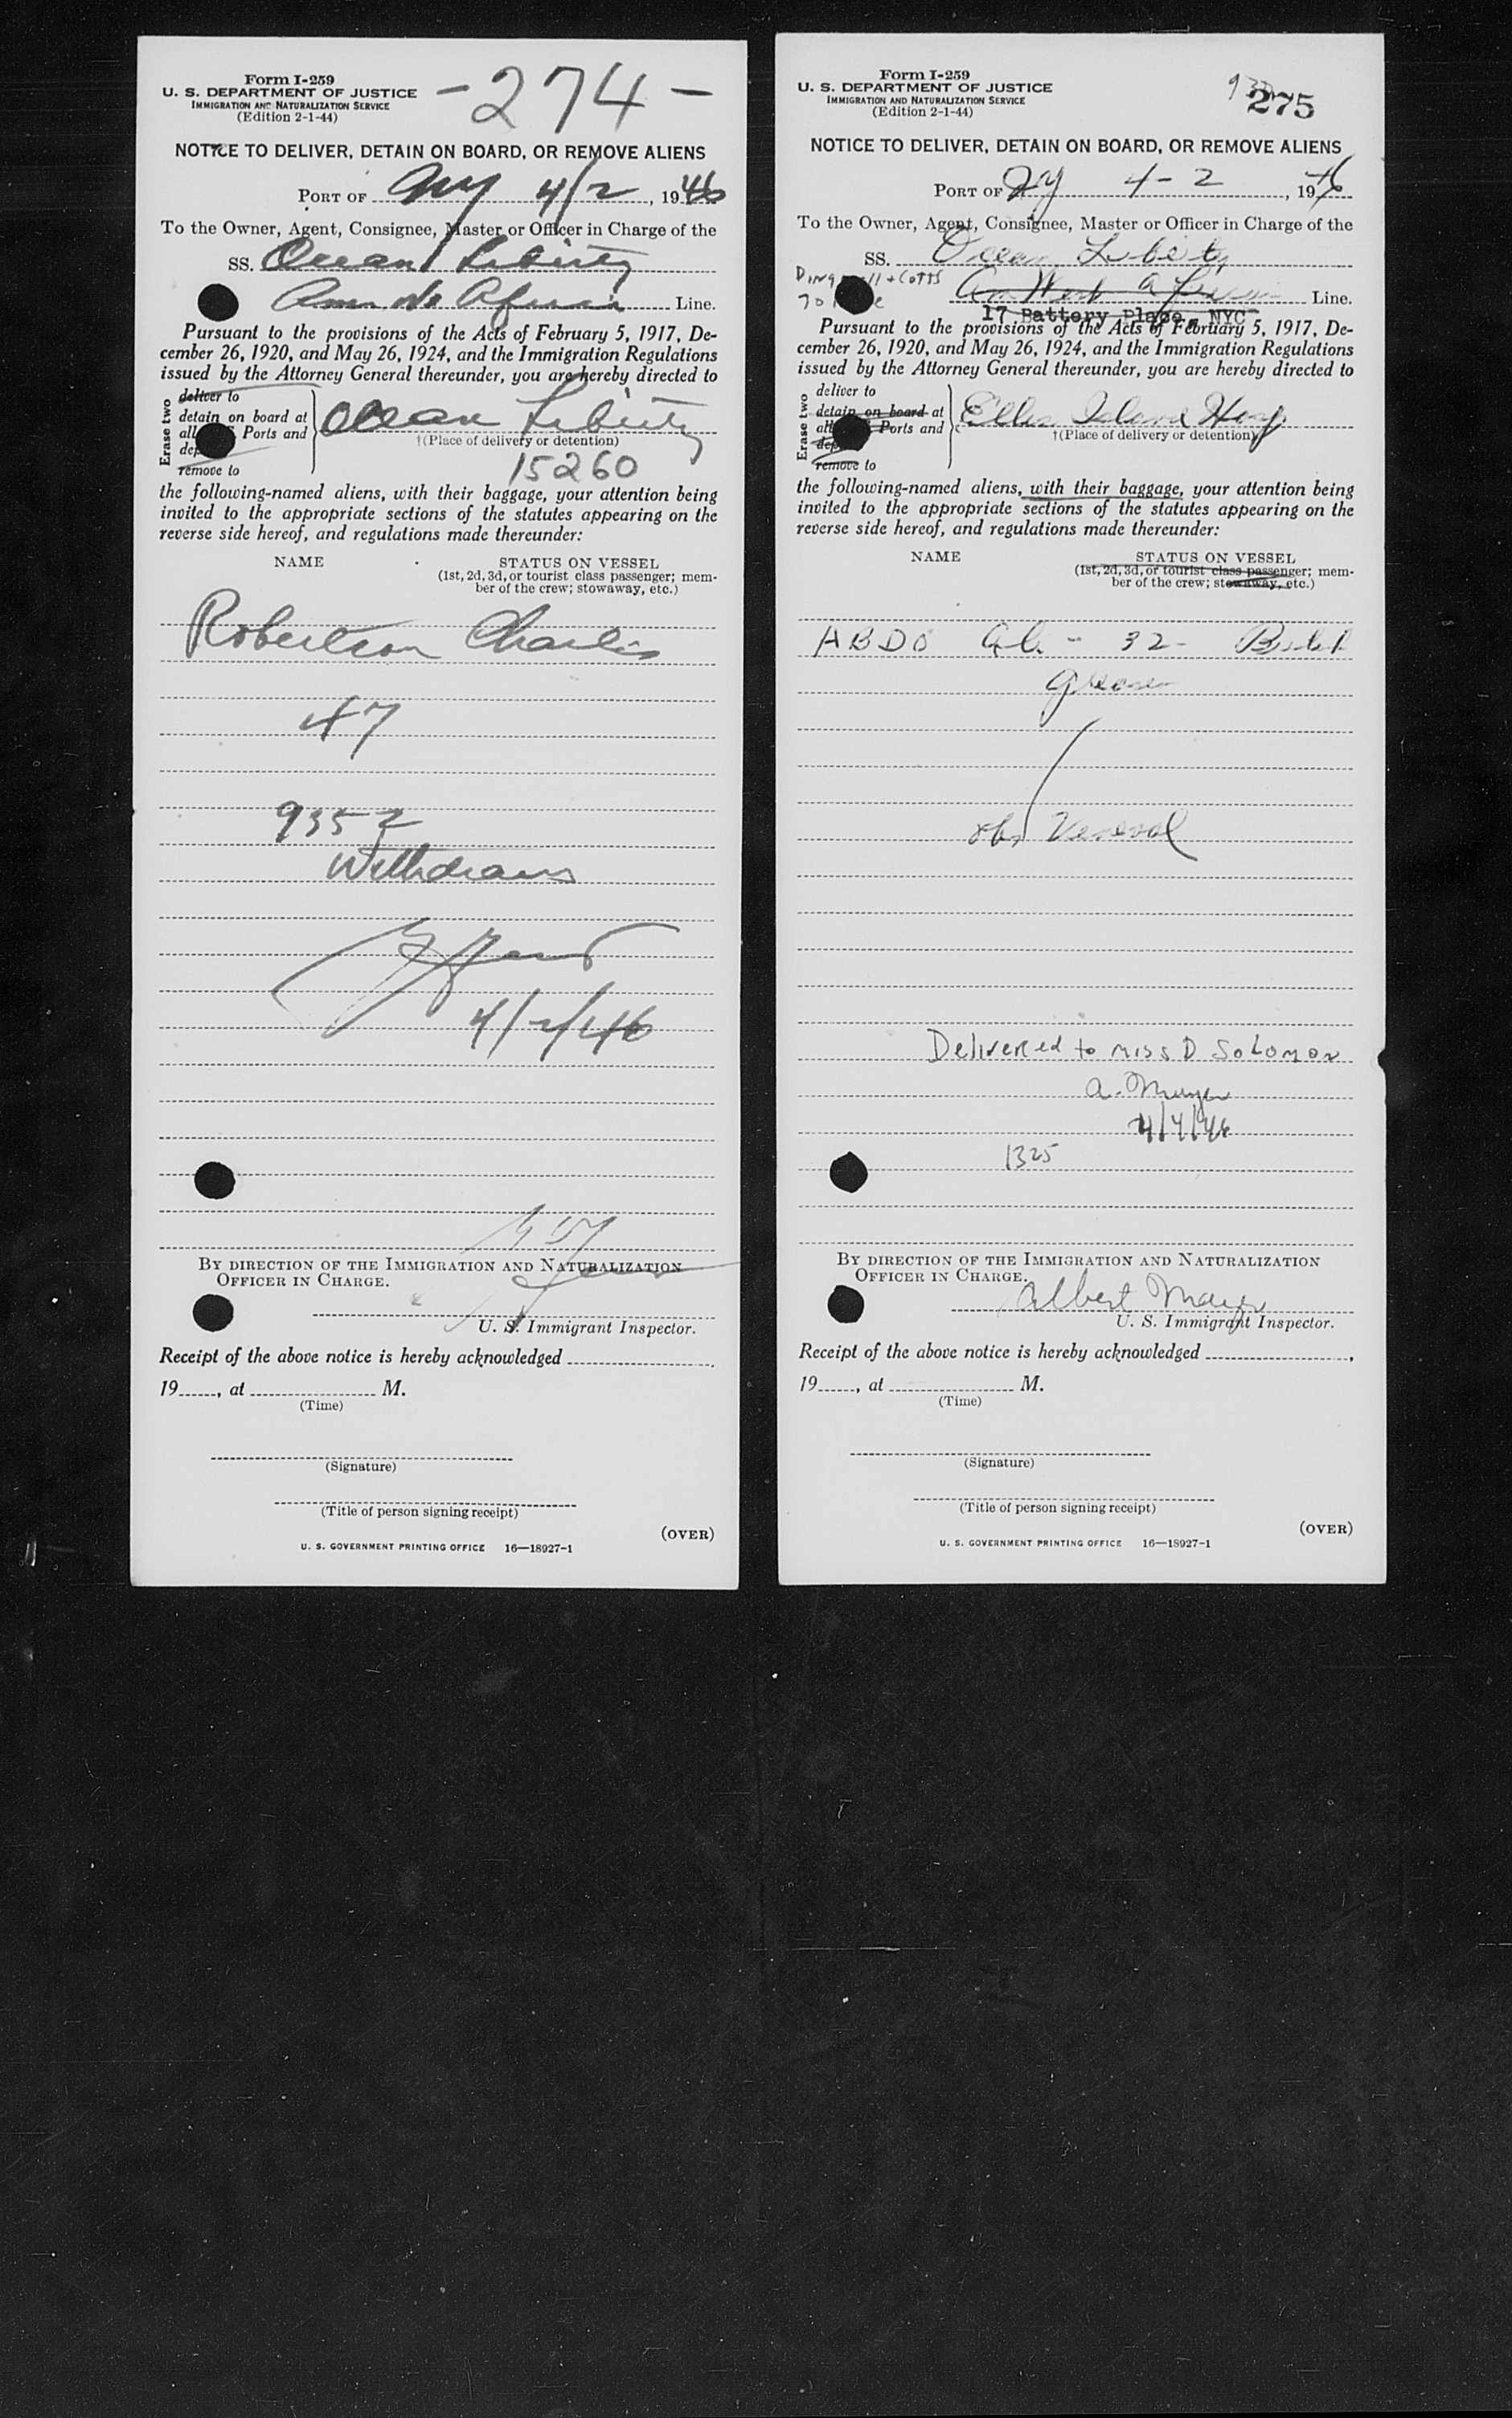 Form I-259
U. S. DEPARTMENT OF JUSTICE
IMMIGRATION AND NATURALIZATION SERVICE
(Edition 2-1-44)
- 274 -
NOTICE TO DELIVER, DETAIN ON BOARD, OR REMOVE ALIENS
PORT OF NY 4/2, 1946
To the Owner, Agent, Consignee, Master or Officer in Charge of the
SS. Ocean Liberty
Am. Africa Line.
Pursuant to the provisions of the Acts of February 5, 1917, De-
cember 26, 1920, and May 26, 1924, and the Immigration Regulations
issued by the Attorney General thereunder, you are hereby directed to
Erase two
deliver to
detain on board at
all Ports and
remove to
Ocean Liberty
†(Place of delivery or detention)
15260
the following-named aliens, with their baggage, your attention being
invited to the appropriate sections of the statutes appearing on the
reverse side hereof, and regulations made thereunder:
NAME STATUS ON VESSEL
(1st, 2d, 3d, or tourist class passenger; mem-
ber of the crew; stowaway, etc.)
Robertson Charles
47
9352
Withdrawn
4/2/46
BY DIRECTION OF THE IMMIGRATION AND NATURALIZATION
OFFICER IN CHARGE.
U. S. Immigrant Inspector.
Receipt of the above notice is hereby acknowledged
19, at M.
(Time)
(Signature)
(Title of person signing receipt)
(OVER)
U. S. GOVERNMENT PRINTING OFFICE 16—18927-1
Form I-259
U. S. DEPARTMENT OF JUSTICE
IMMIGRATION AND NATURALIZATION SERVICE
(Edition 2-1-44)
275
NOTICE TO DELIVER, DETAIN ON BOARD, OR REMOVE ALIENS
PORT OF NY 4-2, 1946
To the Owner, Agent, Consignee, Master or Officer in Charge of the
SS. Ocean Liberty
Am West Africa Line.
17 Battery Place, NYC
Pursuant to the provisions of the Acts of February 5, 1917, De-
cember 26, 1920, and May 26, 1924, and the Immigration Regulations
issued by the Attorney General thereunder, you are hereby directed to
Erase two
deliver to
detain on board at
Ports and
remove to
Ellis Island Hosp
†(Place of delivery or detention)
the following-named aliens, with their baggage, your attention being
invited to the appropriate sections of the statutes appearing on the
reverse side hereof, and regulations made thereunder:
NAME STATUS ON VESSEL
(1st, 2d, 3d, or tourist class passenger; mem-
ber of the crew; stowaway, etc.)
ABDO Ali - 32-
Delivered to Miss D Solomon
A. Mayer
4/4/46
1325
BY DIRECTION OF THE IMMIGRATION AND NATURALIZATION
OFFICER IN CHARGE.
Albert Mayer
U. S. Immigrant Inspector.
Receipt of the above notice is hereby acknowledged
19, at M.
(Time)
(Signature)
(Title of person signing receipt)
(OVER)
U. S. GOVERNMENT PRINTING OFFICE 16—18927-1